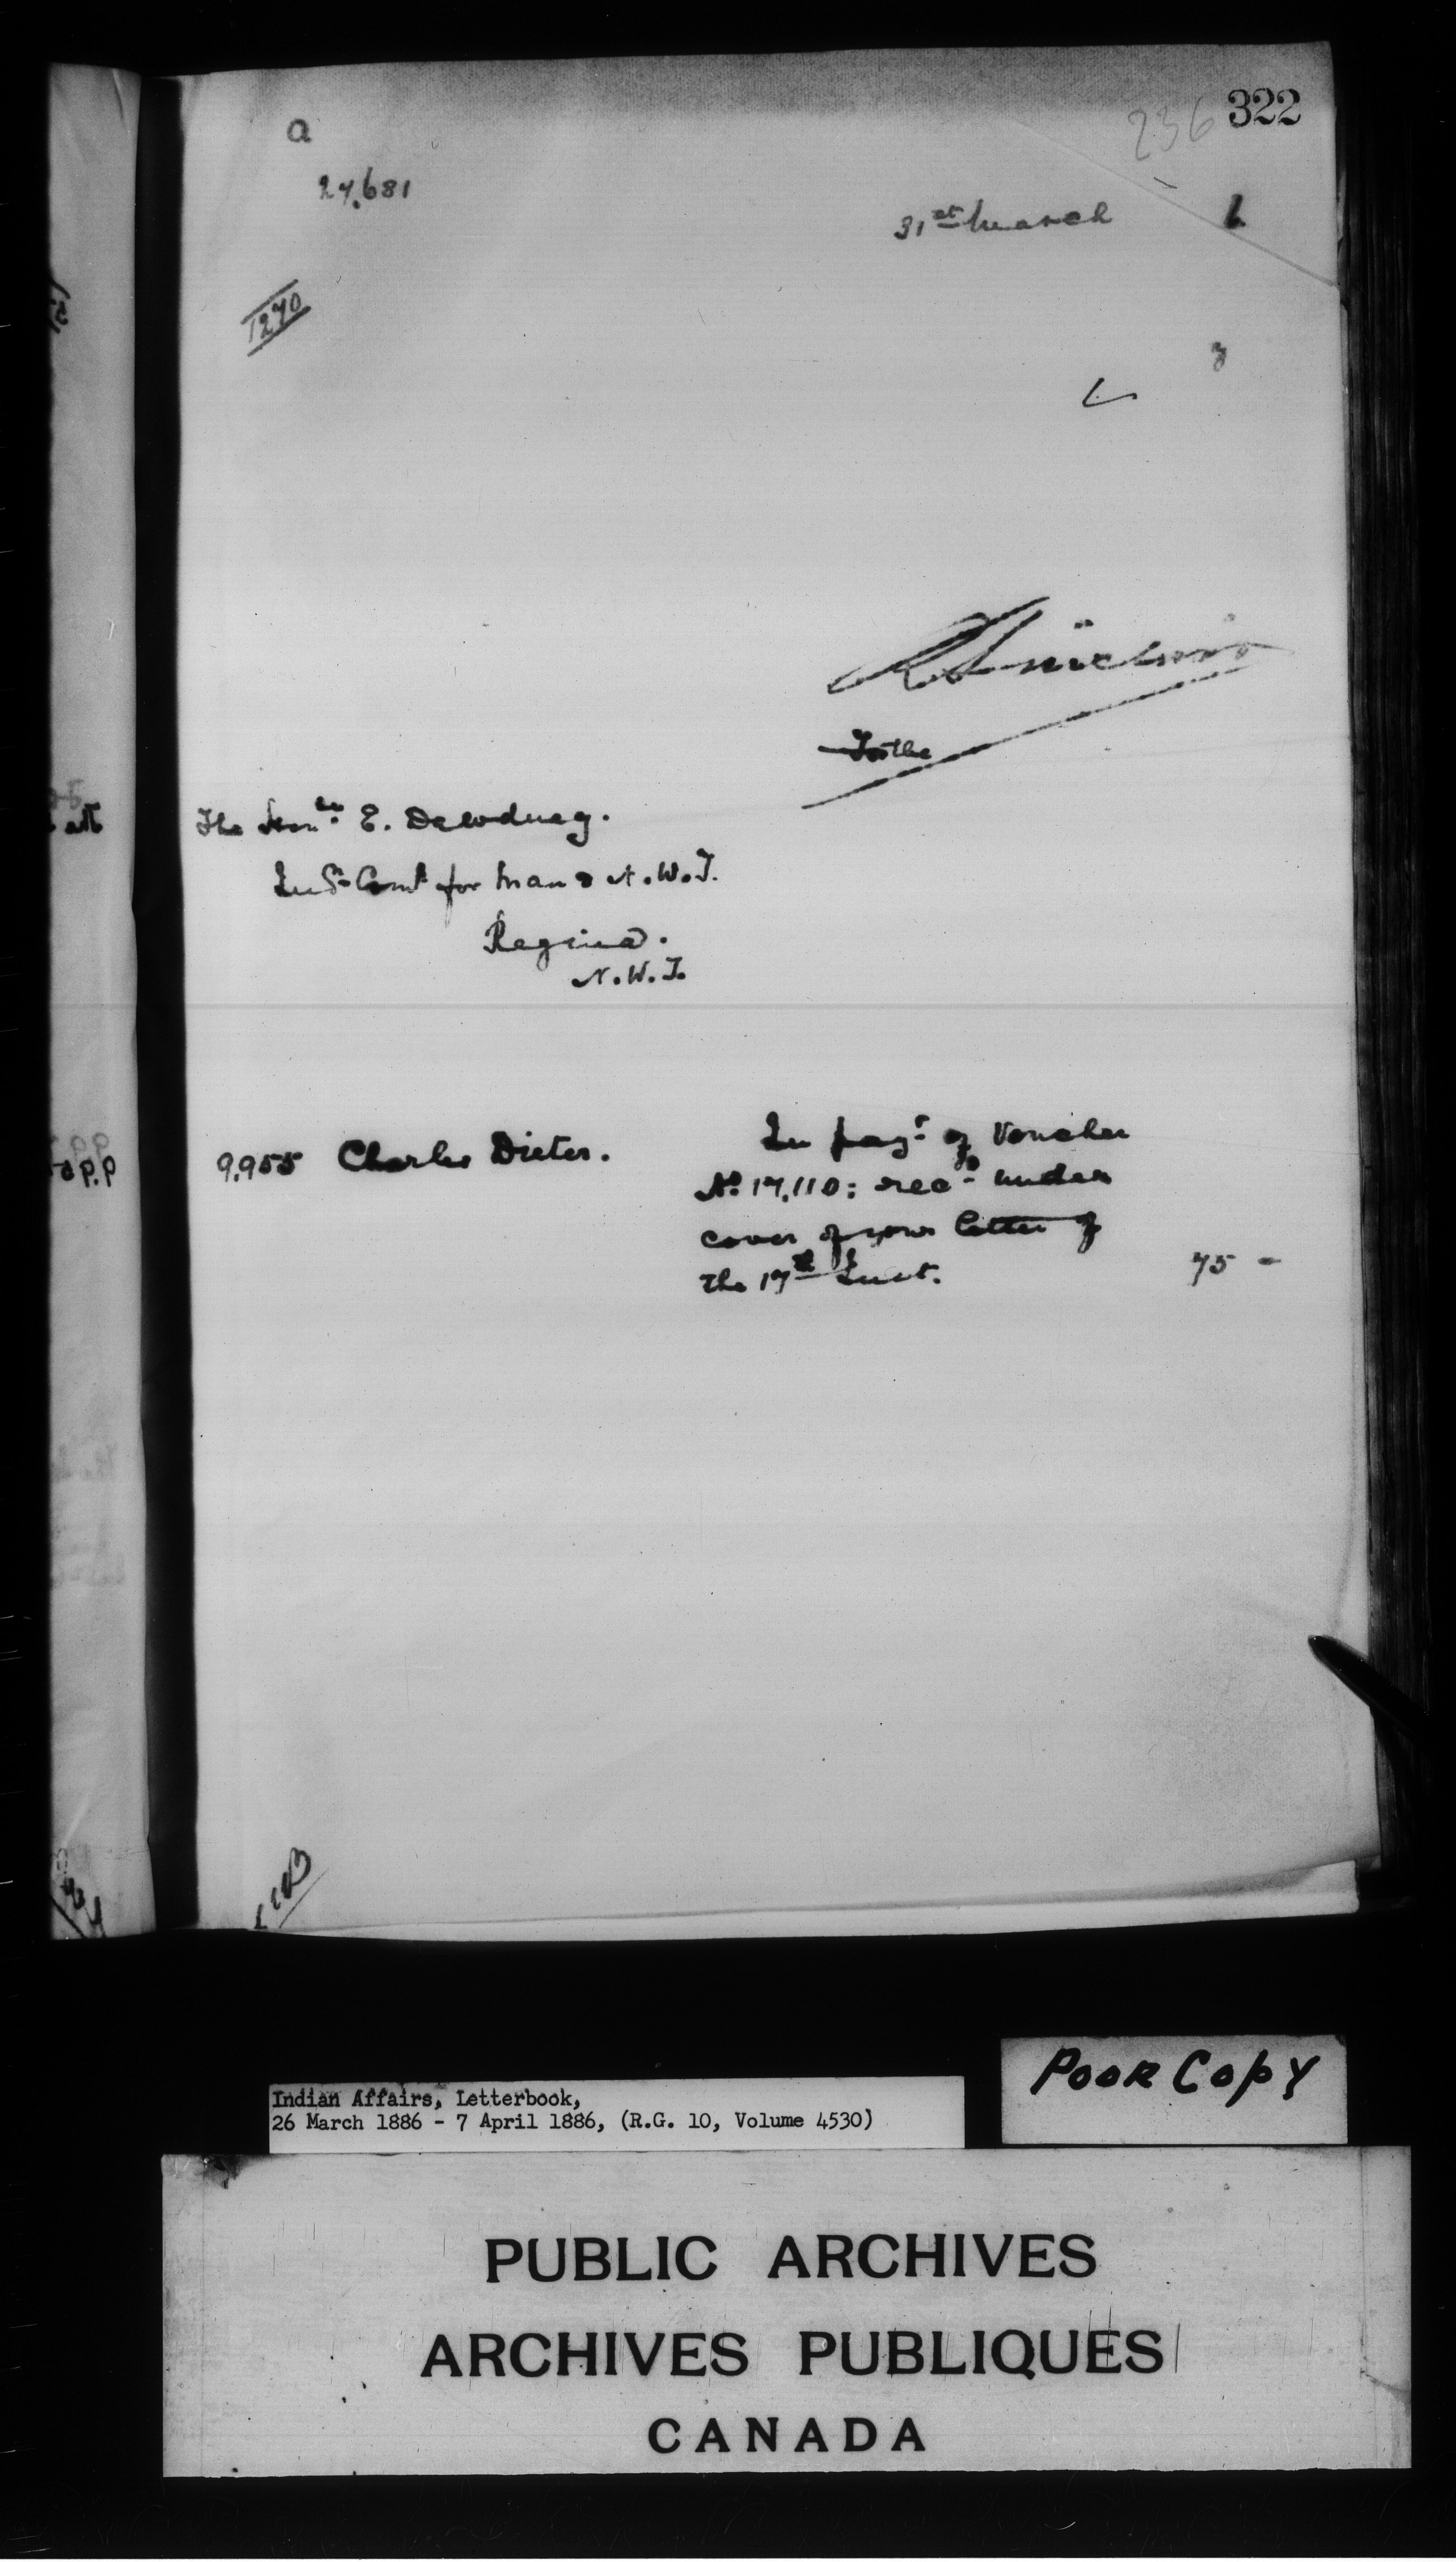 a
236 322
27.681
31st March 6
1270
The Honble E. Dewdney.
Ind. Comr for Man & N.W.T.
Regina.
N.W.T.
9.955 Charles Dieter.
In payt of Voucher
No 17.110: recd under
cover of your letter of
the 17th Inst. 75 -
Poor Copy
Indian Affairs, Letterbook,
26 March 1886 - 7 April 1886, (R.G. 10, Volume 4530)
PUBLIC ARCHIVES
ARCHIVES PUBLIQUES
CANADA